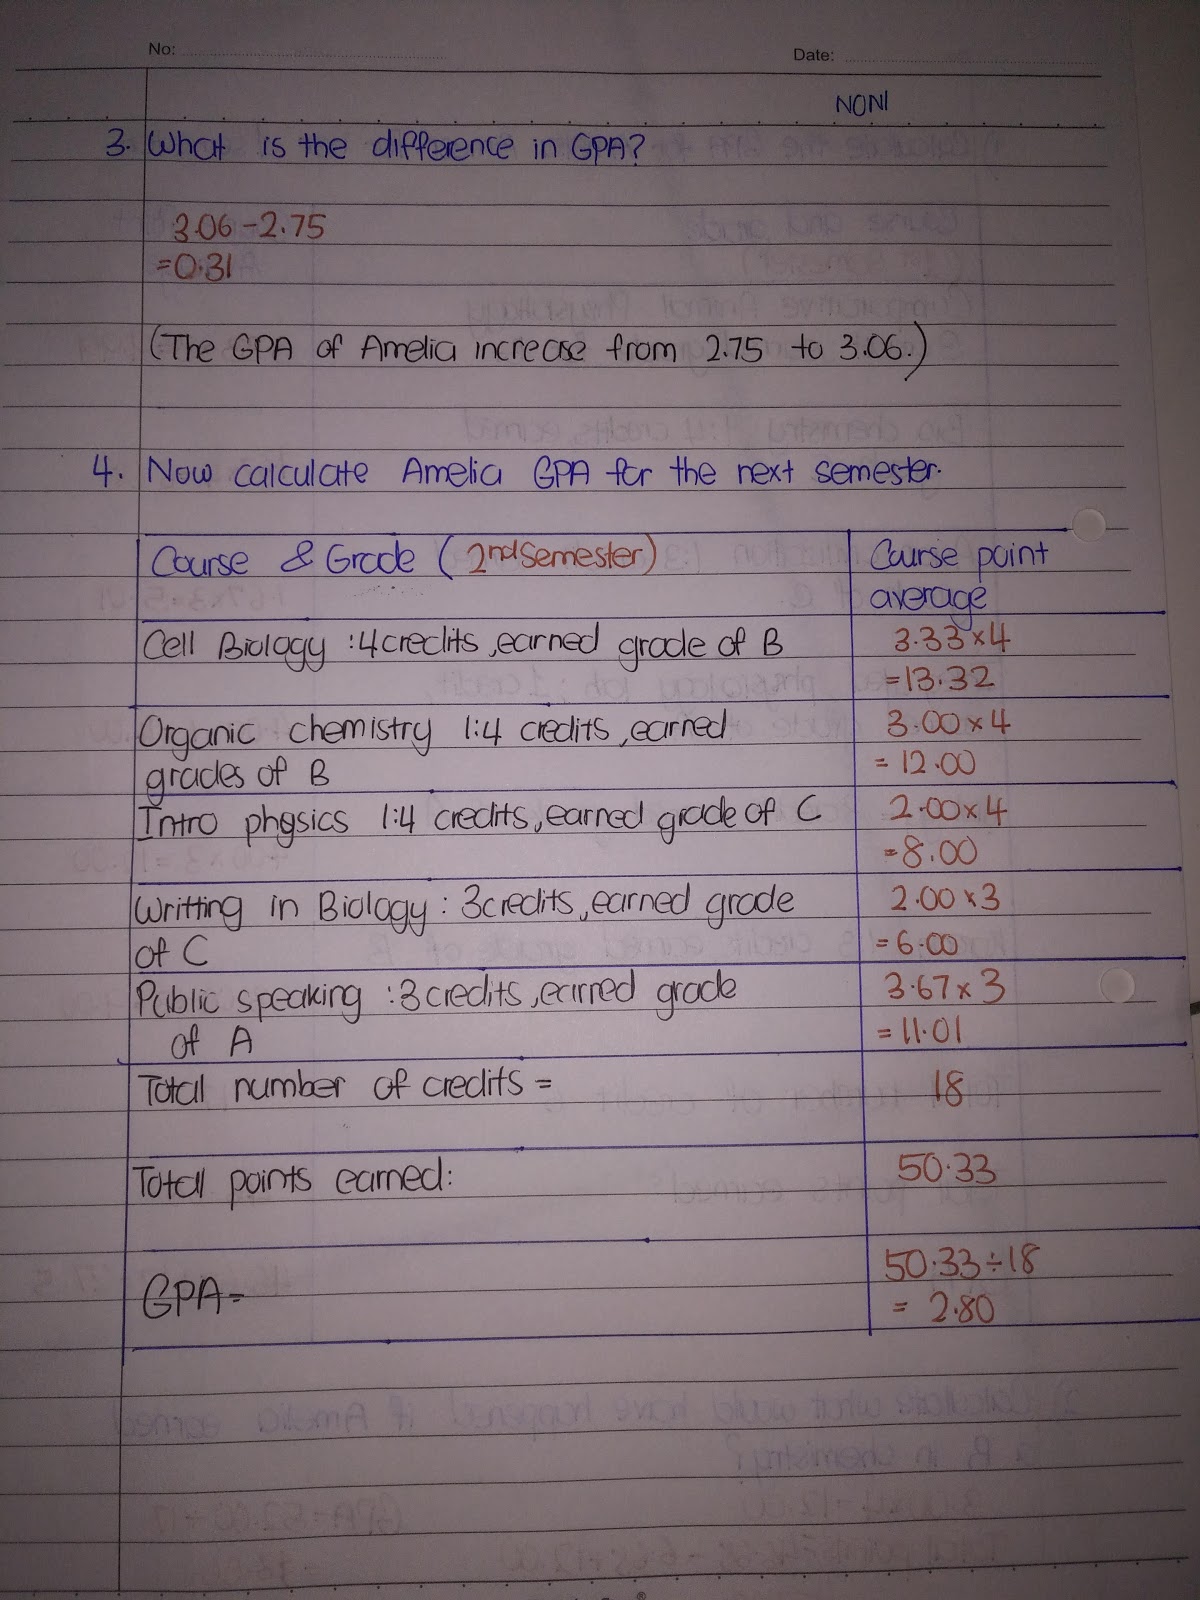 No:
Date:
NONI
3. What is the difference in GPA?
3.06-2.75
=0.31
(The GPA of Amelia increase from 2.75 to 3.06.)
4. Now calculate Amelia GPA for the next semester.
Course & Grade (2nd Semester)
Course point
average
Cell Biology :4credits ,earned grade of B
3.33x4
=13.32
Organic chemistry 1:4 credits ,earned
3.00x4
grades of B
= 12.00
Intro physics 1:4 credits,earned grade of C
2.00x4
=8.00
Writting in Biology : 3credits,earned grade
2.00x3
of C
=6.00
Public speaking :3credits,earned grade
3.67x3
of A
=11.01
Total number of credits =
18
Total points earned:
50.33
50.33÷18
GPA=
= 2.80